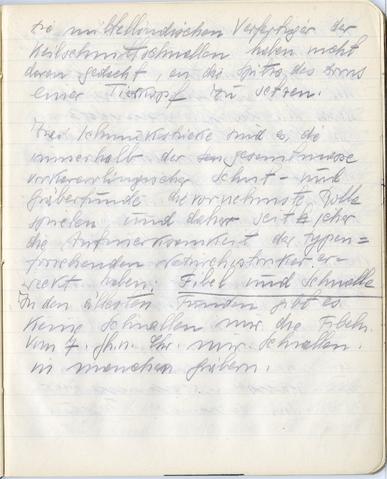 die mittelländischen Verfertiger der
Keilschnittschnallen haben nicht
daran gedacht, an die Spitze des Dorns
einer Tierkopf zu setzen.
Zwei Schmuckstücke sind es, die
innerhalb der gesamtmasse
vorkarolingischer Schatz- und
Gräberfunde die vornehmste Rolle
spielen und daher seit jeher
die Aufmerksamkeit der Typen=
forschenden er-
weckt haben: Fibel und Schnalle
In den ältesten Funden gibt es
keine Schnallen nur die Fibeln.
Vom 7. Jh. n. Chr. nur Schnallen.
in manchen Gräbern.